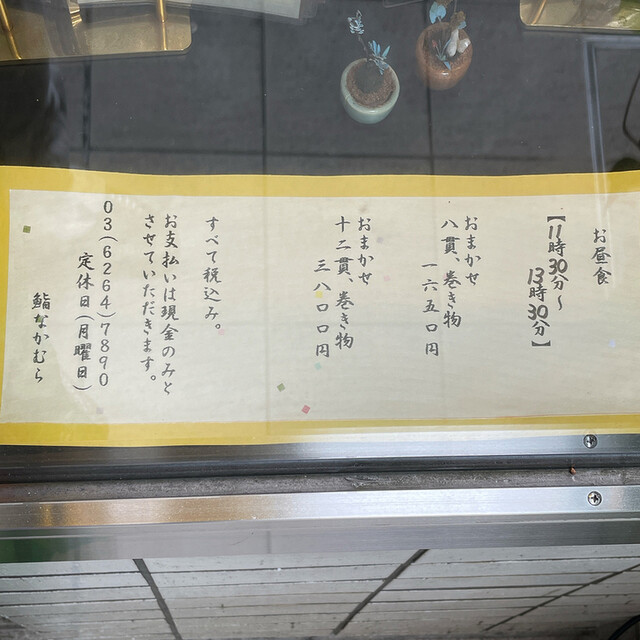 お昼食
【11時30分〜
13時30分】
おまかせ
八貫、巻き物
一六五〇円
おまかせ
十二貫、巻き物
三八〇〇円
すべて税込み。
お支払いは現金のみと
させていただきます。
03(6264)7890
定休日(月曜日)
鮨なかむら